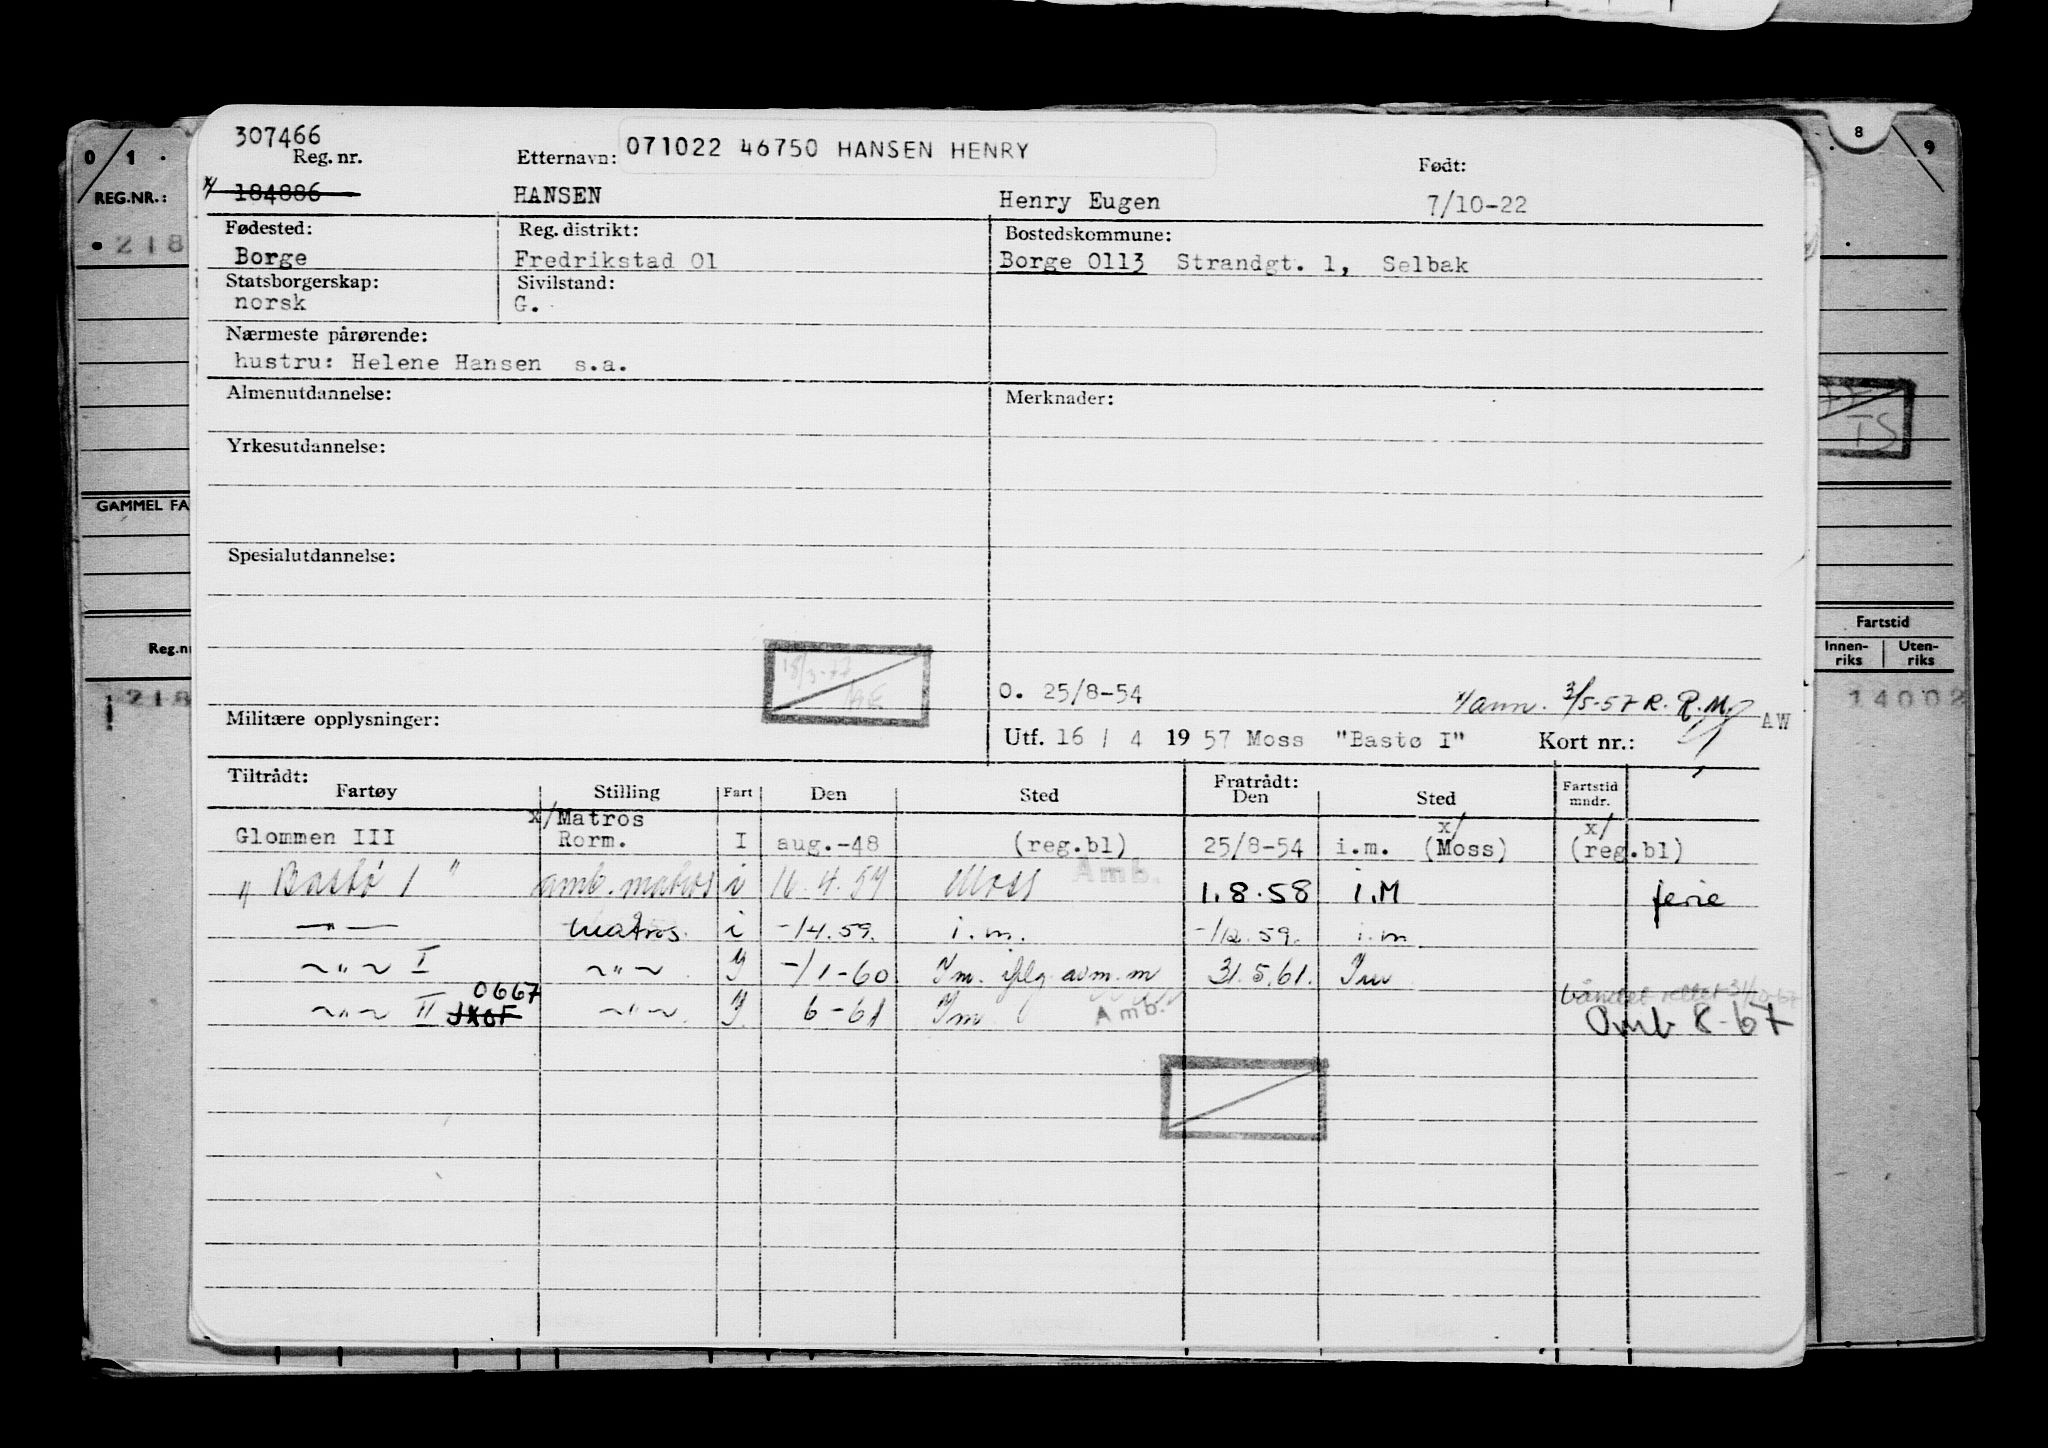 307466
Reg. nr.
Etternavn: 071022 46750 HANSEN HENRY
Født:
x/ 184886 HANSEN Henry Eugen 7/10-22
Fødested: Reg. distrikt: Bostedskommune:
Borge Fredrikstad 01 Borge 0113 Strandgt. 1, Selbak
Statsborgerskap: Sivilstand:
norsk G.
Nærmeste pårørende:
hustru: Helene Hansen s.a.
Almenutdannelse: Merknader:
Yrkesutdannelse:
Spesialutdannelse:
O. 25/8-54 x/ ann. 3/5-57 R. R.M. AW
Militære opplysninger: Utf. 16 / 4 1957 Moss "Bastø I" Kort nr.:
Tiltrådt: Fratrådt:
Fartøy Stilling Fart Den Sted Den Sted Fartstid mndr.
x/Matros x/ x/
Glommen III Rorm. I aug.-48 (reg.bl) 25/8-54 i.m. (Moss) (reg.bl)
" Bastø I " amb. matros i 16.4.57 Moss Amb. 1.8.58 i.M ferie
—"— Matros. i -/4.59. i.m. -/12.59. i.m
~"~ I ~"~ I -/1-60 Im. 31.5.61. Im
0667
~"~ II JXOF ~"~ I. 6-61 Im Amb. Amb 8-67
0/1
REG.NR.:
218
GAMMEL FA
Reg.nr
218
8
9
TS
Fartstid
Innen-riks Uten-riks
14002